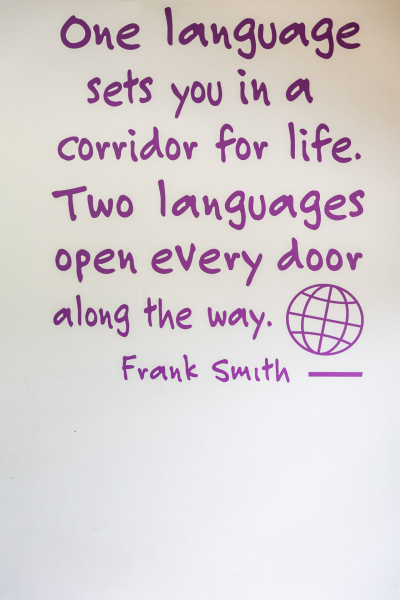 One language
sets you in a
corridor for life.
Two languages
open every door
along the way.
Frank Smith